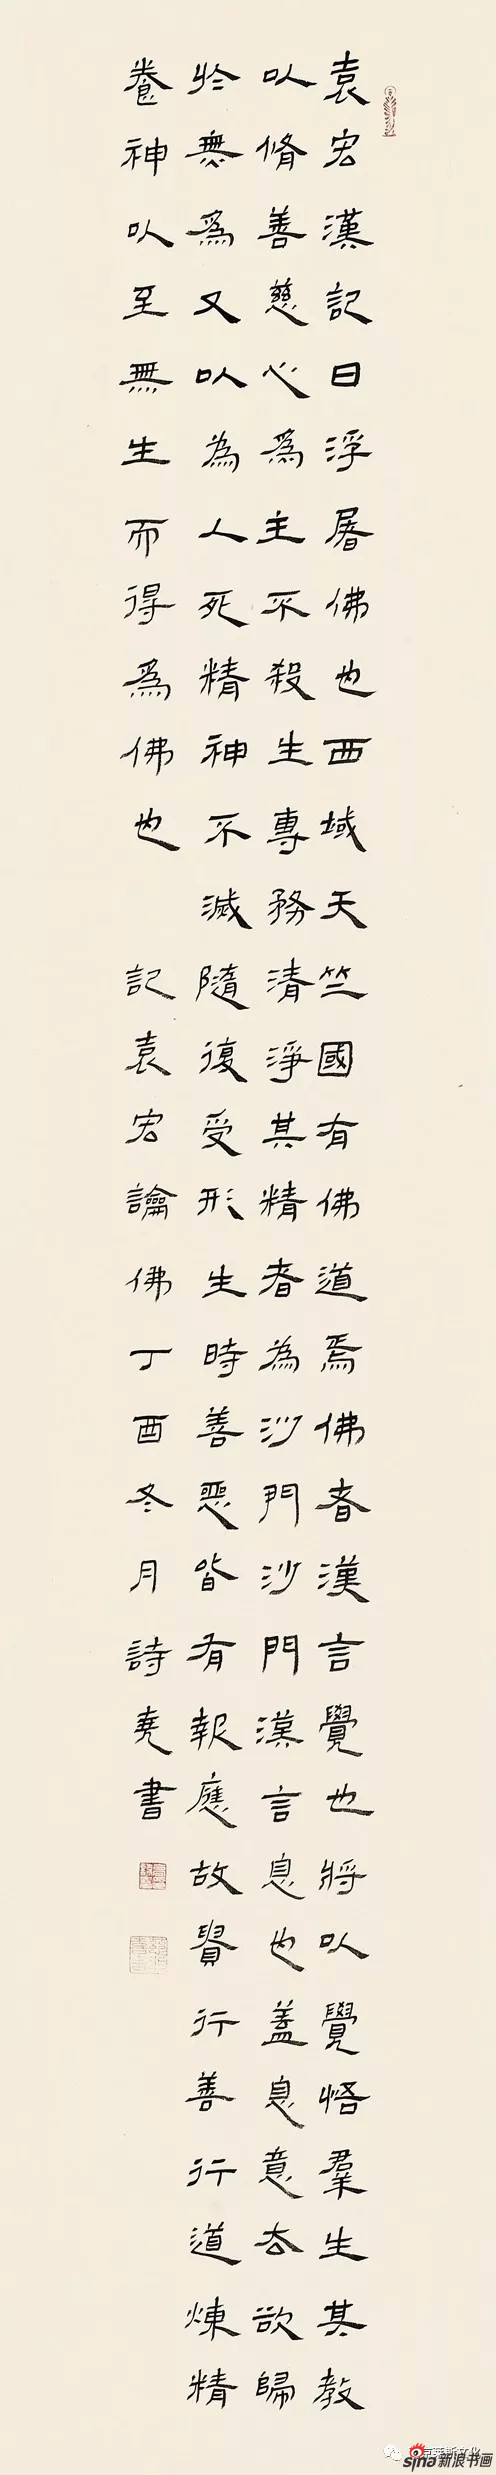 袁宏漢記曰浮屠佛也西域天竺國有佛道焉佛者漢言覺也將以覺悟羣生其教
以脩善慈心爲主不殺生專務清淨其精者為沙門沙門漢言息也蓋息意去欲歸
於無爲又以為人死精神不滅隨復受形生時善惡皆有報應故貴行善行道煉精
養神以至無生而得爲佛也 記袁宏論佛丁酉冬月詩堯書
新文化
sina新浪书画